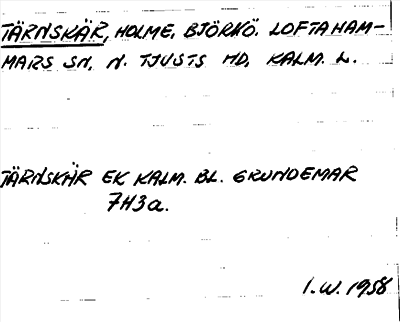 TÄRNSKÄR, HOLME, BJÖRKÖ. LOFTAHAM-
MARS SN, N. TJUSTS HD, KALM. L.
TÄRNSKÄR EK KALM. BL. GRUNDEMAR
7H3a.
I.W. 1958